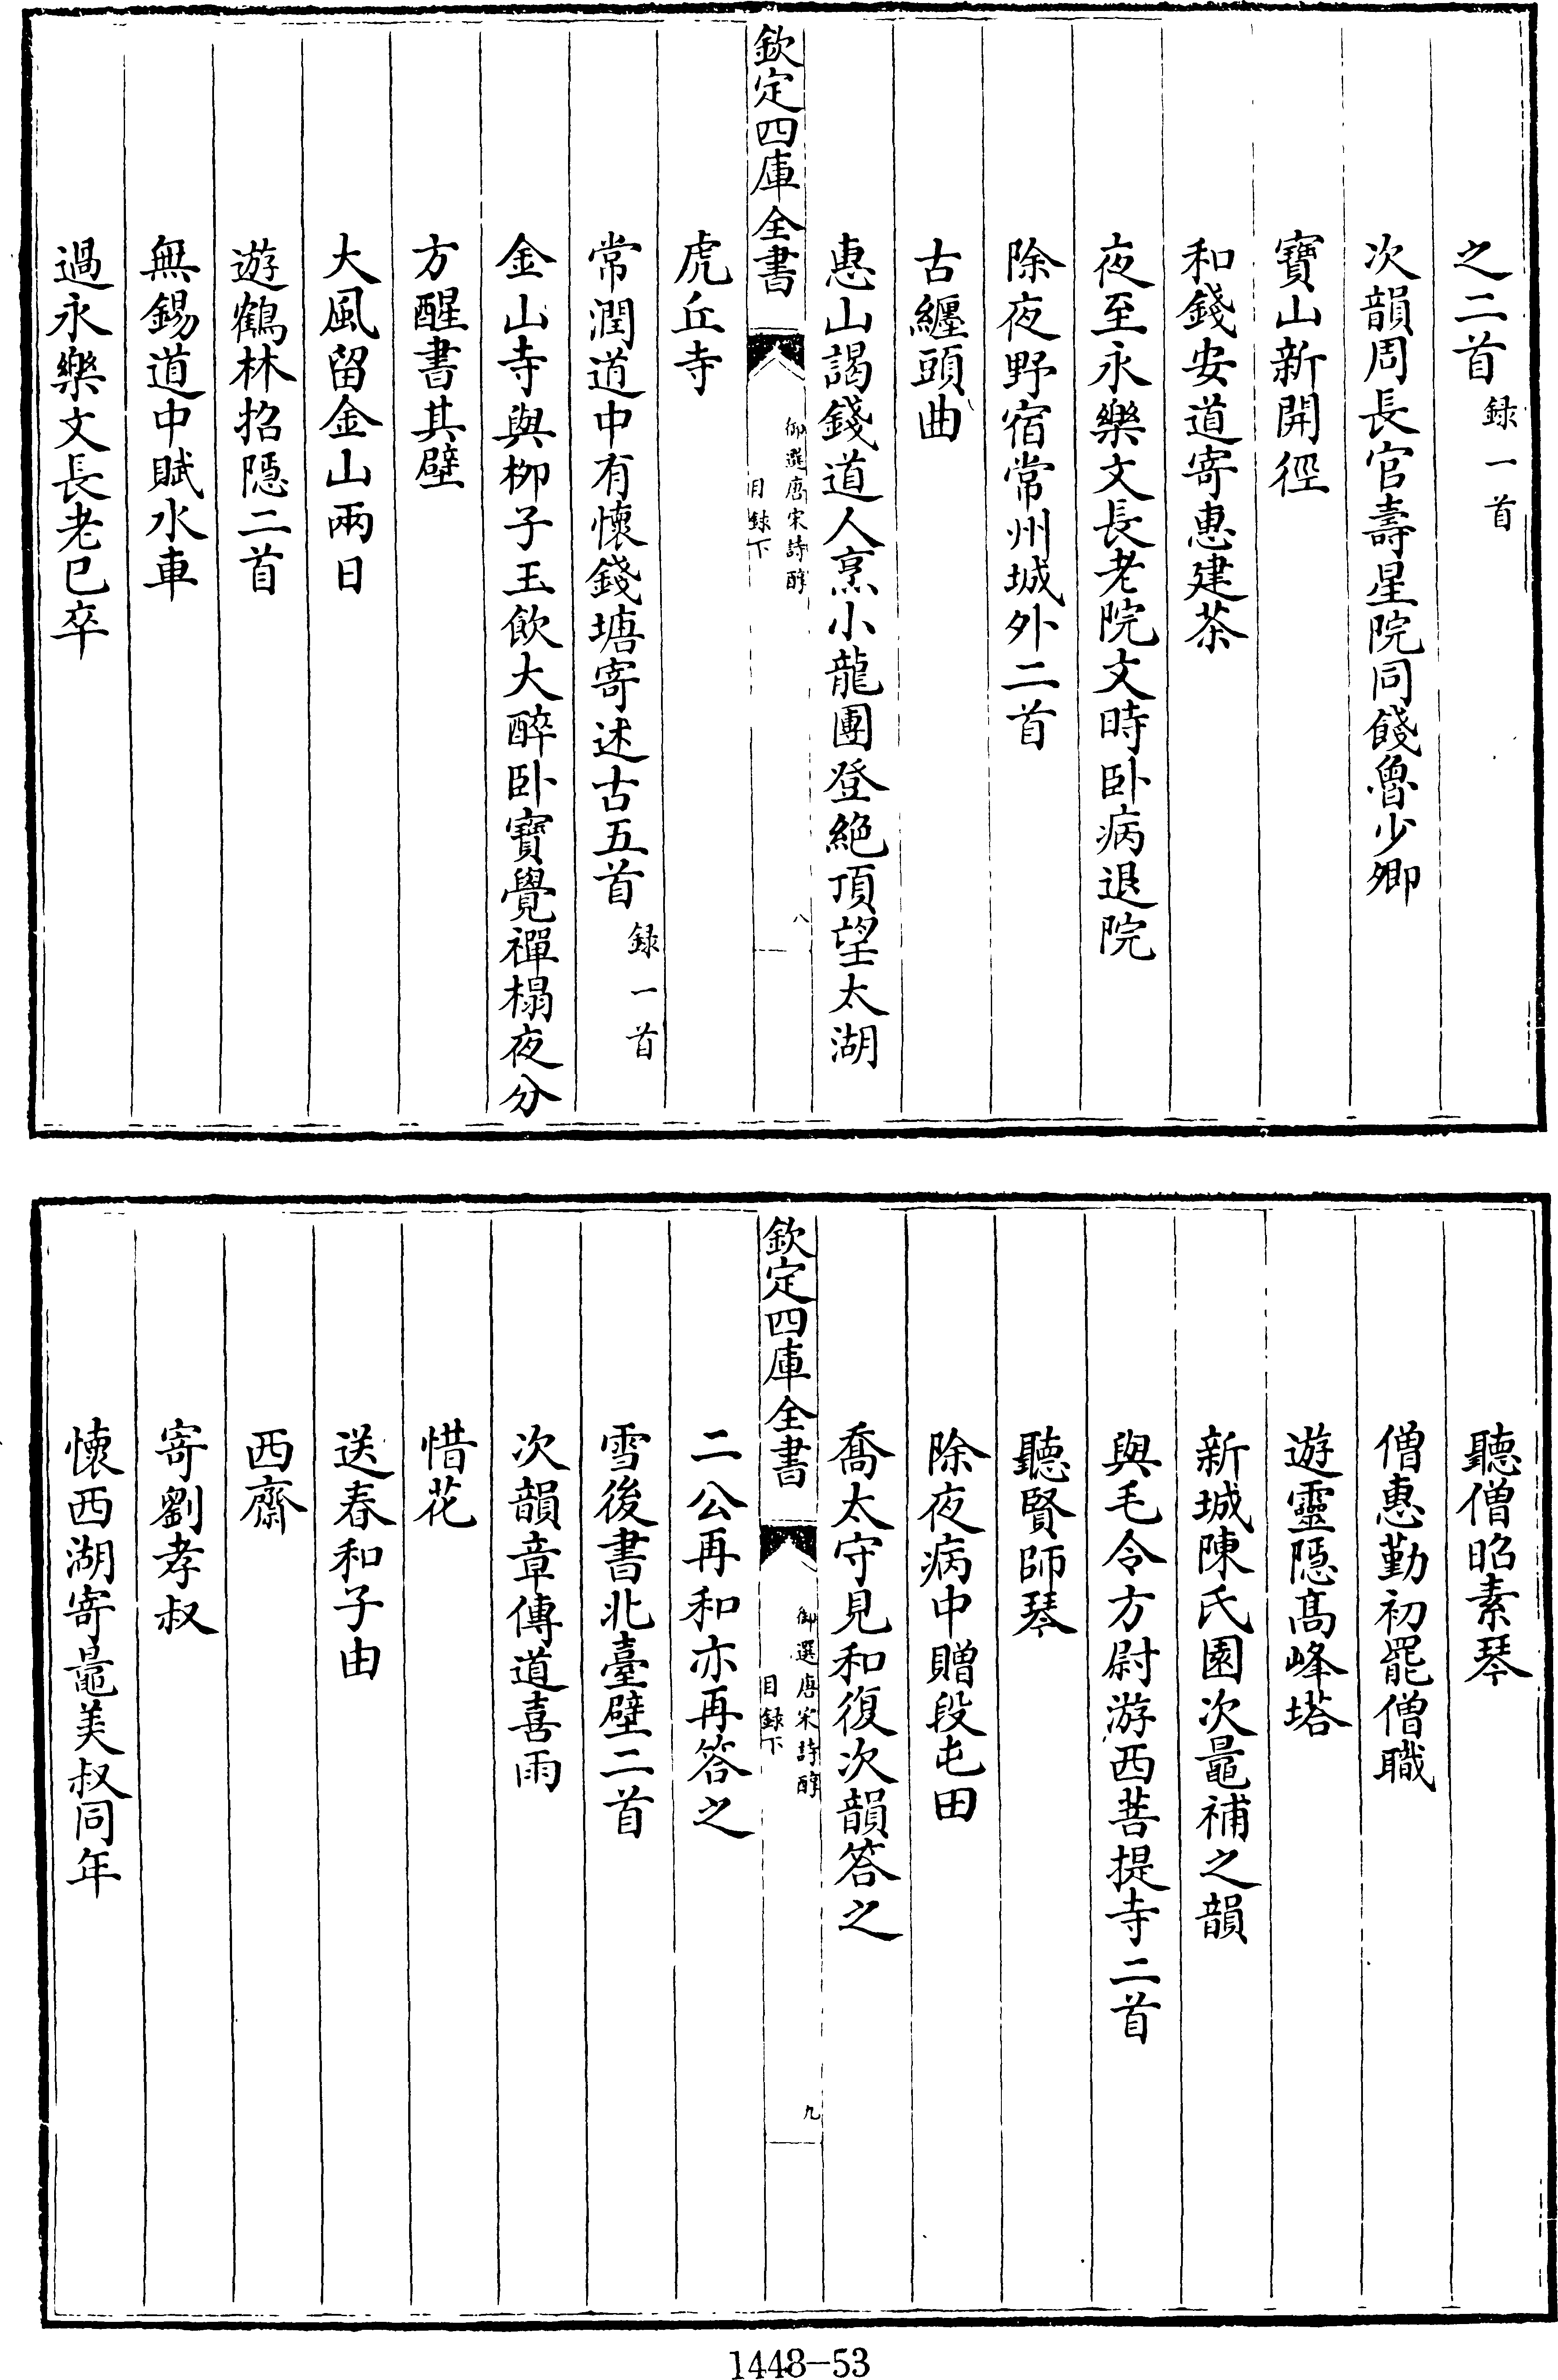 之二首録一首
次韻周長官壽星院同餞魯少卿
寶山新開徑
和錢安道寄惠建茶
夜至永樂文長老院文時卧病退院
除夜野宿常州城外二首
古纏頭曲
惠山謁錢道人烹小龍團登絶頂望太湖
欽定四庫全書
御選唐宋詩醇
目録下
八
虎丘寺
常潤道中有懷錢塘寄述古五首録一首
金山寺與柳子玉飲大醉卧寶覺禪榻夜分
方醒書其壁
大風留金山兩日
遊鶴林招隱二首
無錫道中賦水車
過永樂文長老已卒
聽僧昭素琴
僧惠勤初罷僧職
遊靈隱髙峰塔
新城陳氏園次鼂補之韻
與毛令方尉游西菩提寺二首
聽賢師琴
除夜病中贈段屯田
喬太守見和復次韻答之
欽定四庫全書
御選唐宋詩醇
目録下
九
二公再和亦再答之
雪後書北臺壁二首
次韻章傳道喜雨
惜花
送春和子由
西齋
寄劉孝叔
懷西湖寄鼂美叔同年
1448-53